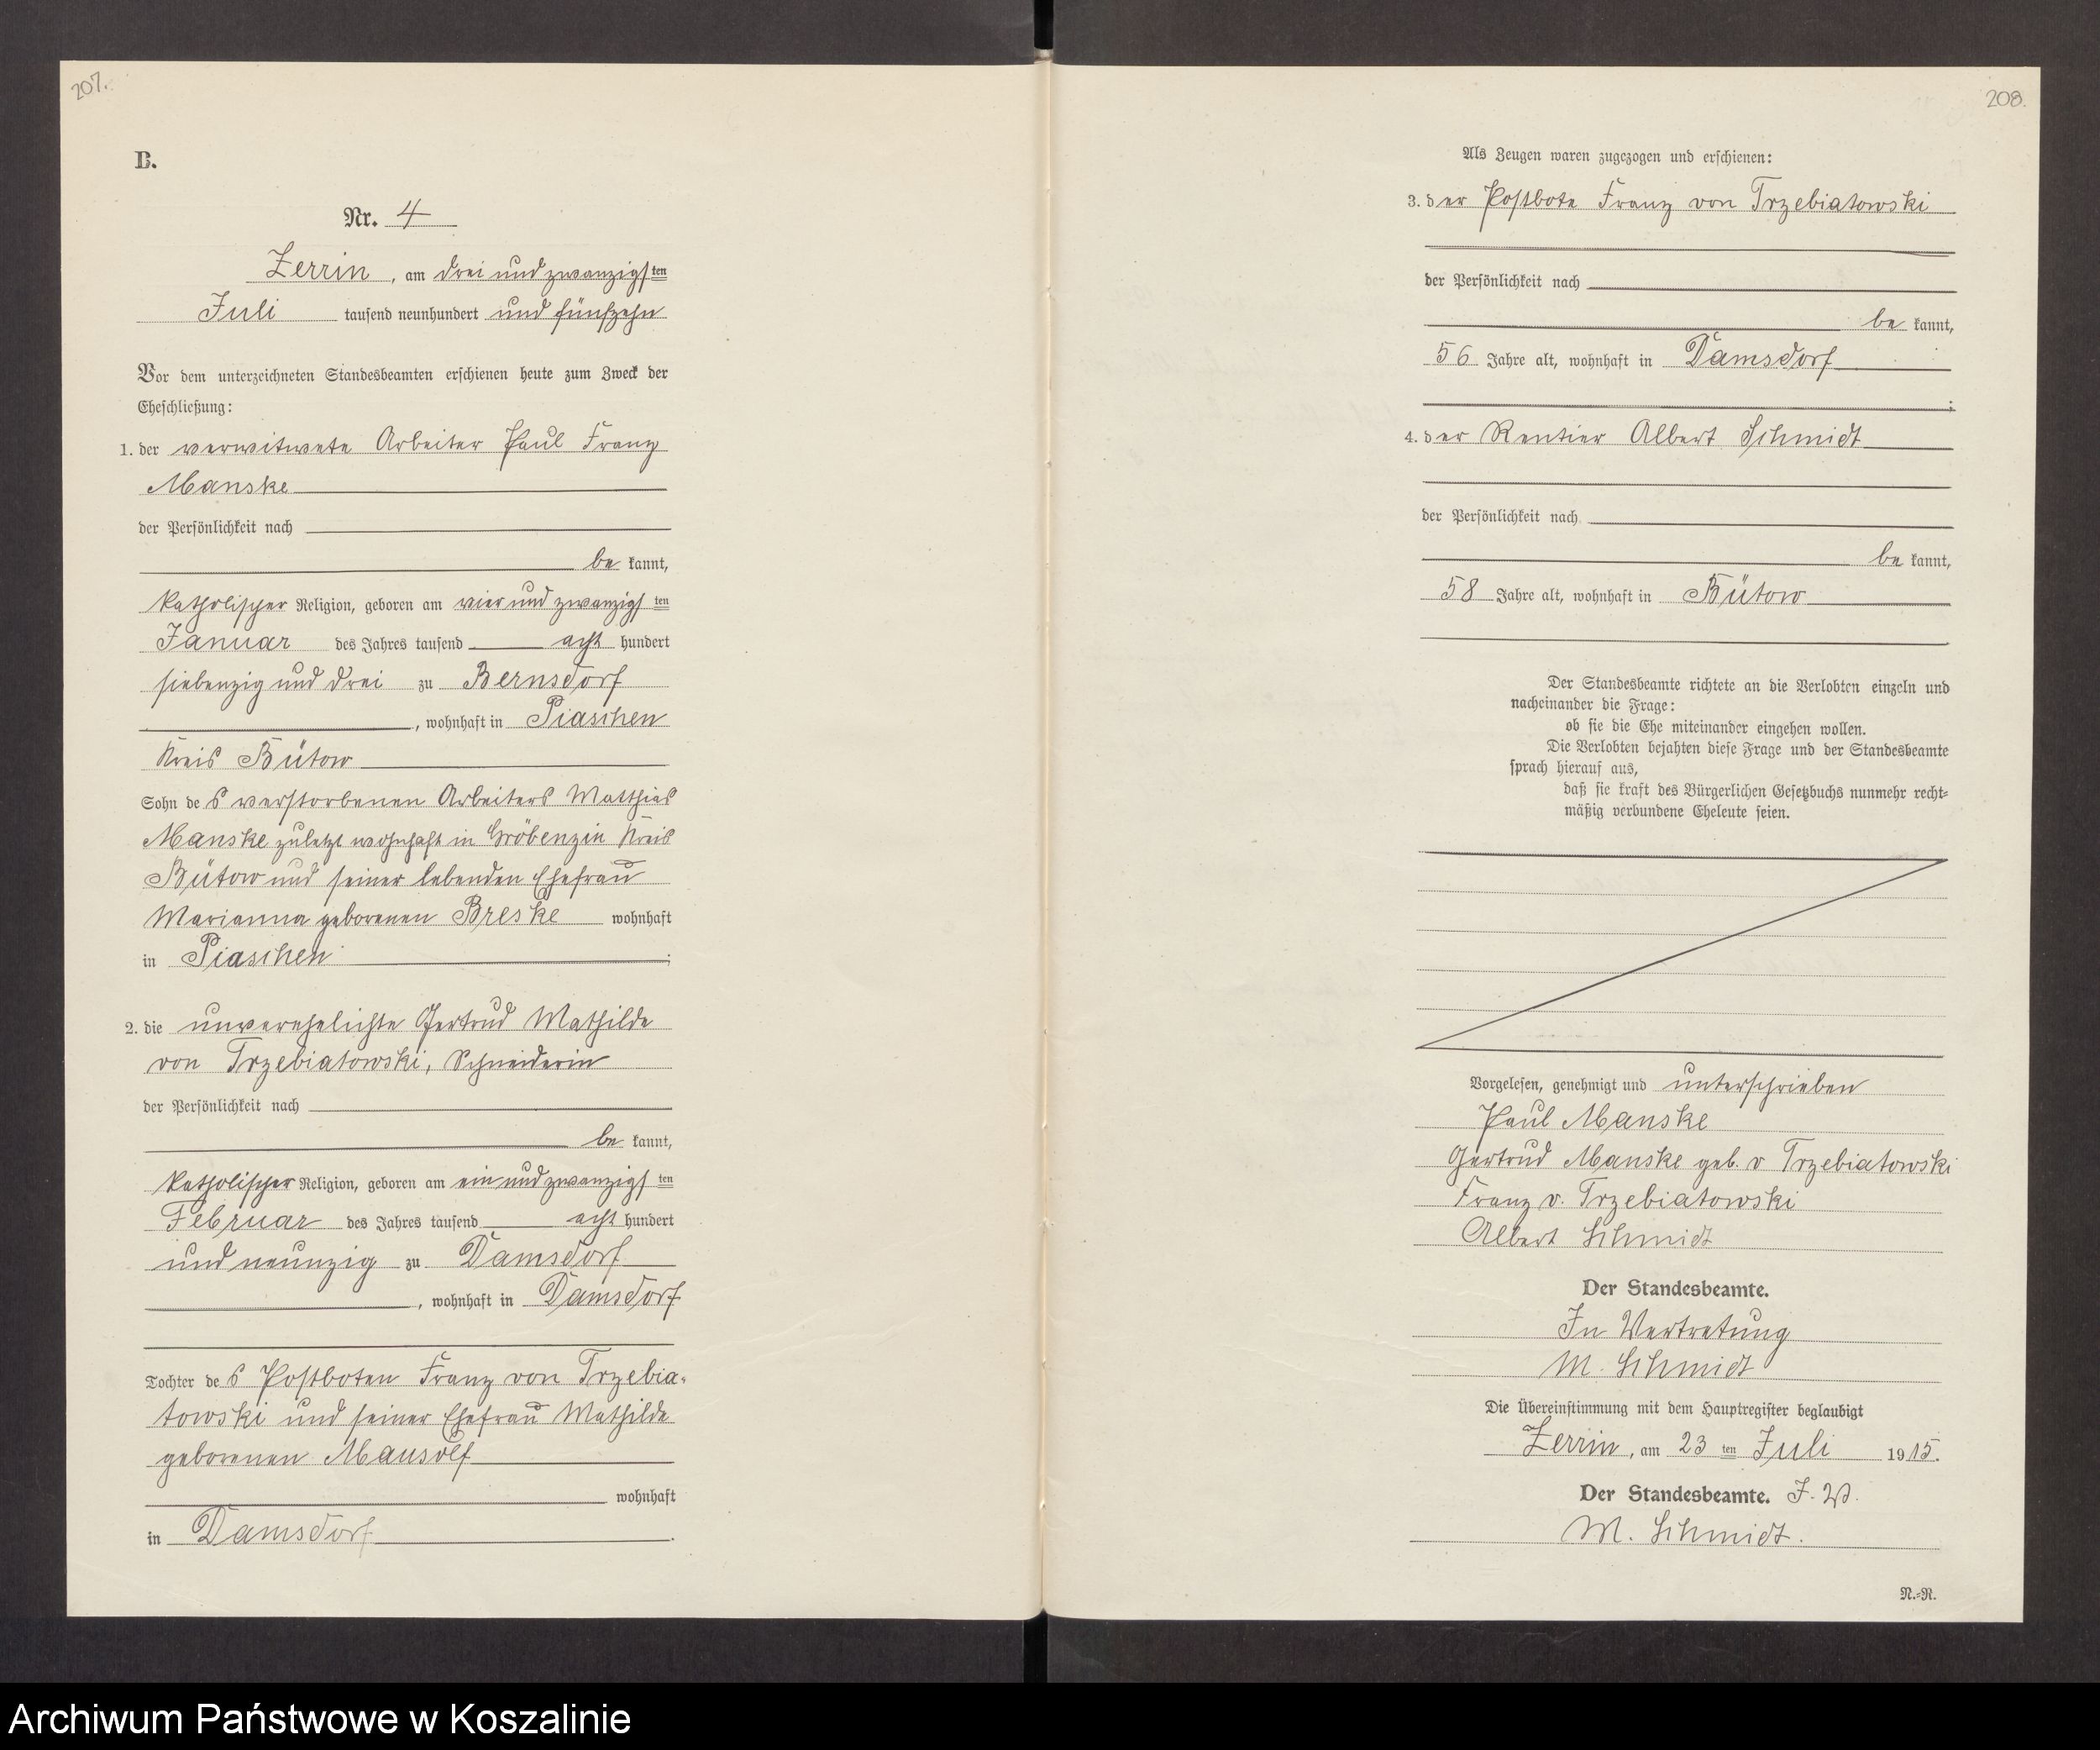 207.
B.
Nr. 4
Zerrin, am drei und zwanzigsten
Juli tausend neunhundert und fünfzehn
Vor dem unterzeichneten Standesbeamten erschienen heute zum Zweck der
Eheschließung:
1. der verwitwete Arbeiter Paul Franz
Manske
der Persönlichkeit nach
be kannt,
katholischer Religion, geboren am vier und zwanzigsten
Januar des Jahres tausend acht hundert
siebenzig und drei zu Bernsdorf
, wohnhaft in Piaschen
Kreis Bütow
Sohn des verstorbenen Arbeiters Matthias
Manske zuletzt wohnhaft in Gröbenzin Kreis
Bütow und seiner lebenden Ehefrau
Marianna geborenen Breske wohnhaft
in Piaschen ;
2. die unverehelichte Gertrud Mathilde
von Trzebiatowski, Schneiderin
der Persönlichkeit nach
be kannt,
katholischer Religion, geboren am ein und zwanzigsten
Februar des Jahres tausend acht hundert
und neunzig zu Damsdorf
, wohnhaft in Damsdorf
Tochter des Postboten Franz von Trzebia-
towski und seiner Ehefrau Mathilde
geborenen Mausolf
wohnhaft
in Damsdorf .
208.
Als Zeugen waren zugezogen und erschienen:
3. der Postbote Franz von Trzebiatowski
der Persönlichkeit nach
be kannt,
56 Jahre alt, wohnhaft in Damsdorf
;
4. der Rentier Albert Schmidt
der Persönlichkeit nach
be kannt,
58 Jahre alt, wohnhaft in Bütow
Der Standesbeamte richtete an die Verlobten einzeln und
nacheinander die Frage:
ob sie die Ehe miteinander eingehen wollen.
Die Verlobten bejahten diese Frage und der Standesbeamte
sprach hierauf aus,
daß sie kraft des Bürgerlichen Gesetzbuchs nunmehr recht-
mäßig verbundene Eheleute seien.
Vorgelesen, genehmigt und unterschrieben
Paul Manske
Gertrud Manske geb. v Trzebiatowski
Franz v. Trzebiatowski
Albert Schmidt
Der Standesbeamte.
In Vertretung
M. Schmidt
Die Übereinstimmung mit dem Hauptregister beglaubigt
Zerrin, am 23 ten Juli 1915.
Der Standesbeamte. I. V.
M. Schmidt.
N.-R.
Archiwum Państwowe w Koszalinie